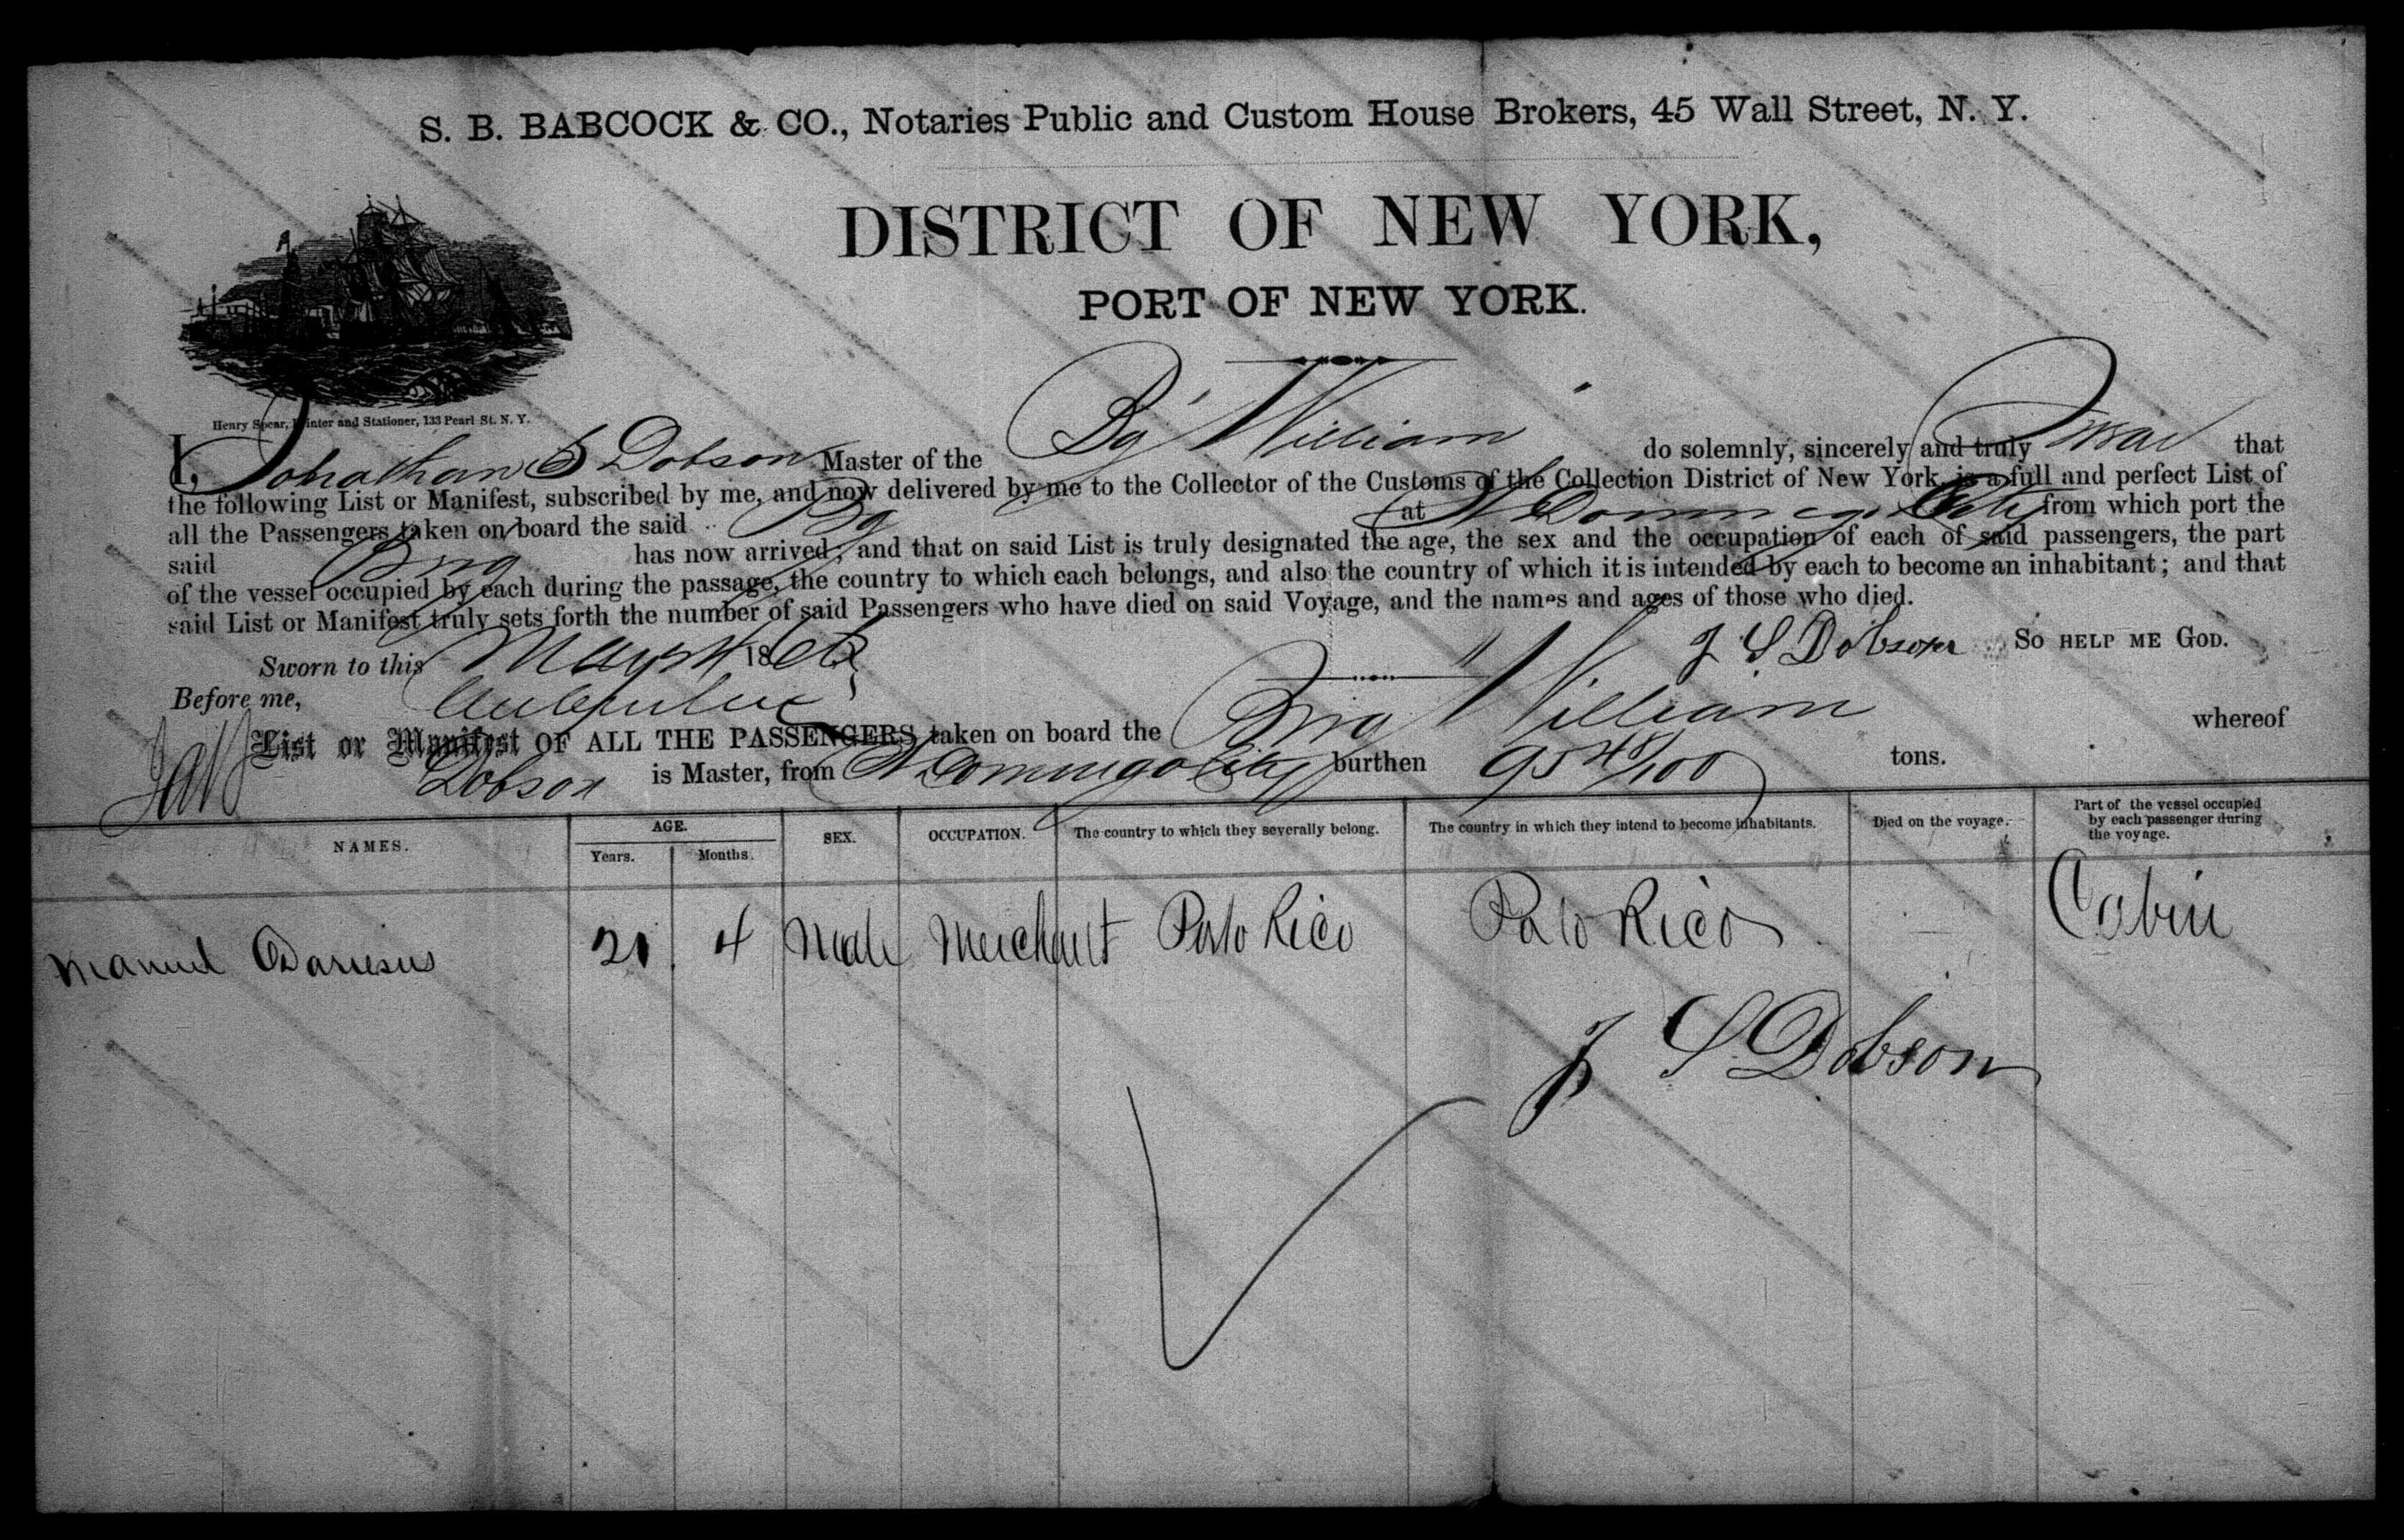 S. B. BABCOCK & CO., Notaries Public and Custom House Brokers, 45 Wall Street, N. Y.
DISTRICT OF NEW YORK,
PORT OF NEW YORK.
Henry Spear, Printer and Stationer, 133 Pearl St. N. Y.
I, Jonathan S Dobson Master of the Bg "William" do solemnly, sincerely and truly swear that
the following List or Manifest, subscribed by me, and now delivered by me to the Collector of the Customs of the Collection District of New York, is a full and perfect List of
all the Passengers taken on board the said Bg at St Domingo City from which port the
said Brig has now arrived; and that on said List is truly designated the age, the sex and the occupation of each of said passengers, the part
of the vessel occupied by each during the passage, the country to which each belongs, and also the country of which it is intended by each to become an inhabitant; and that
said List or Manifest truly sets forth the number of said Passengers who have died on said Voyage, and the names and ages of those who died.
Sworn to this May 186 J S Dobson So HELP ME GOD.
Before me,
List or Manifest OF ALL THE PASSENGERS taken on board the Brig "William whereof
Dobson is Master, from St Domingo City burthen 95 48/100 tons.
NAMES. AGE. Years. Months. SEX. OCCUPATION. The country to which they severally belong. The country in which they intend to become inhabitants. Died on the voyage. Part of the vessel occupied by each passenger during the voyage.
Manuel 21 4 Male Merchant Porto Rico Porto Rico Cabin
J S Dobson